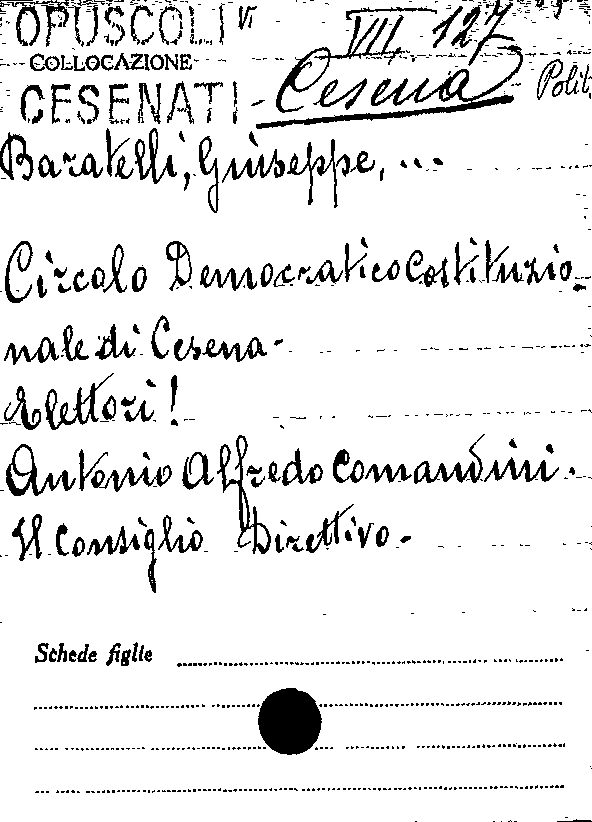 OPUSCOLI VI VII, 127
COLLOCAZIONE
CESENATI - Cesena Polit.
Baratelli, Giuseppe, ...
Circolo Democratico Costituzio_
nale di Cesena -
Elettori!
Antonio Alfredo Comandini.
Il Consiglio Direttivo. -
Schede figlie